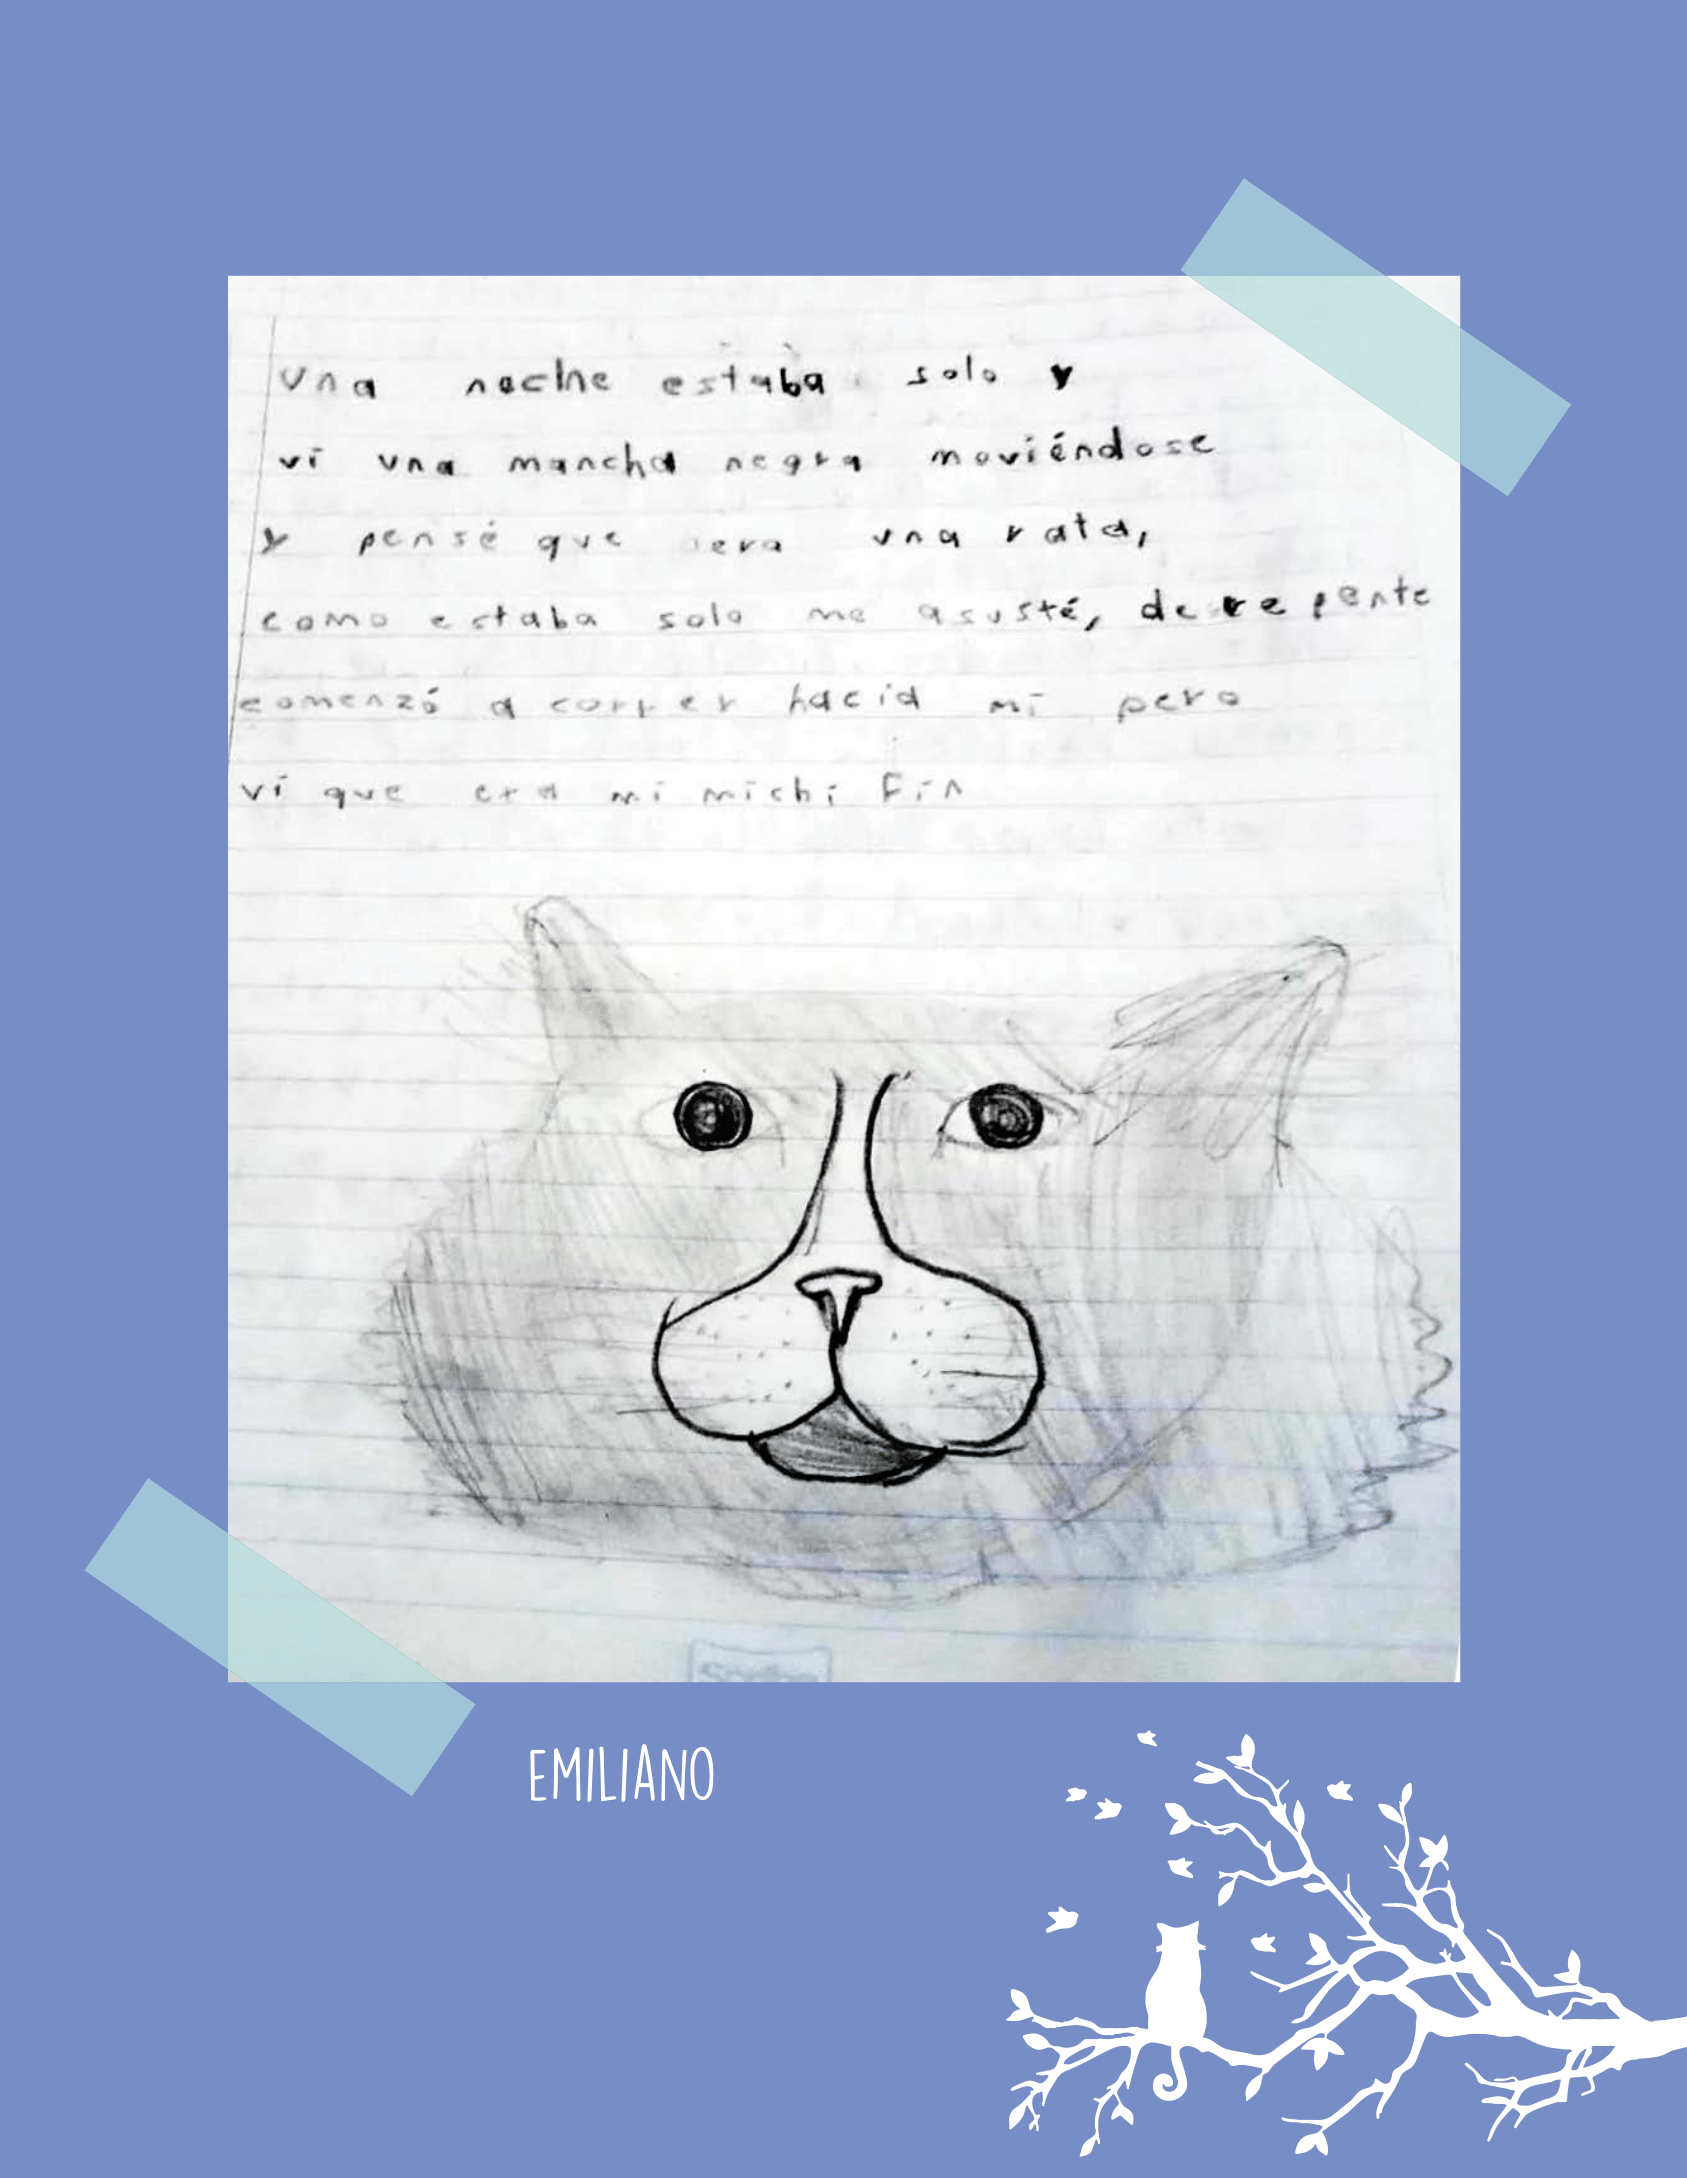 una noche estaba solo y
vi una mancha negra moviéndose
y pensé que era una rata,
como estaba solo me asusté, de repente
comenzó a correr hacia mi pero
vi que era mi michi Fin
EMILIANO